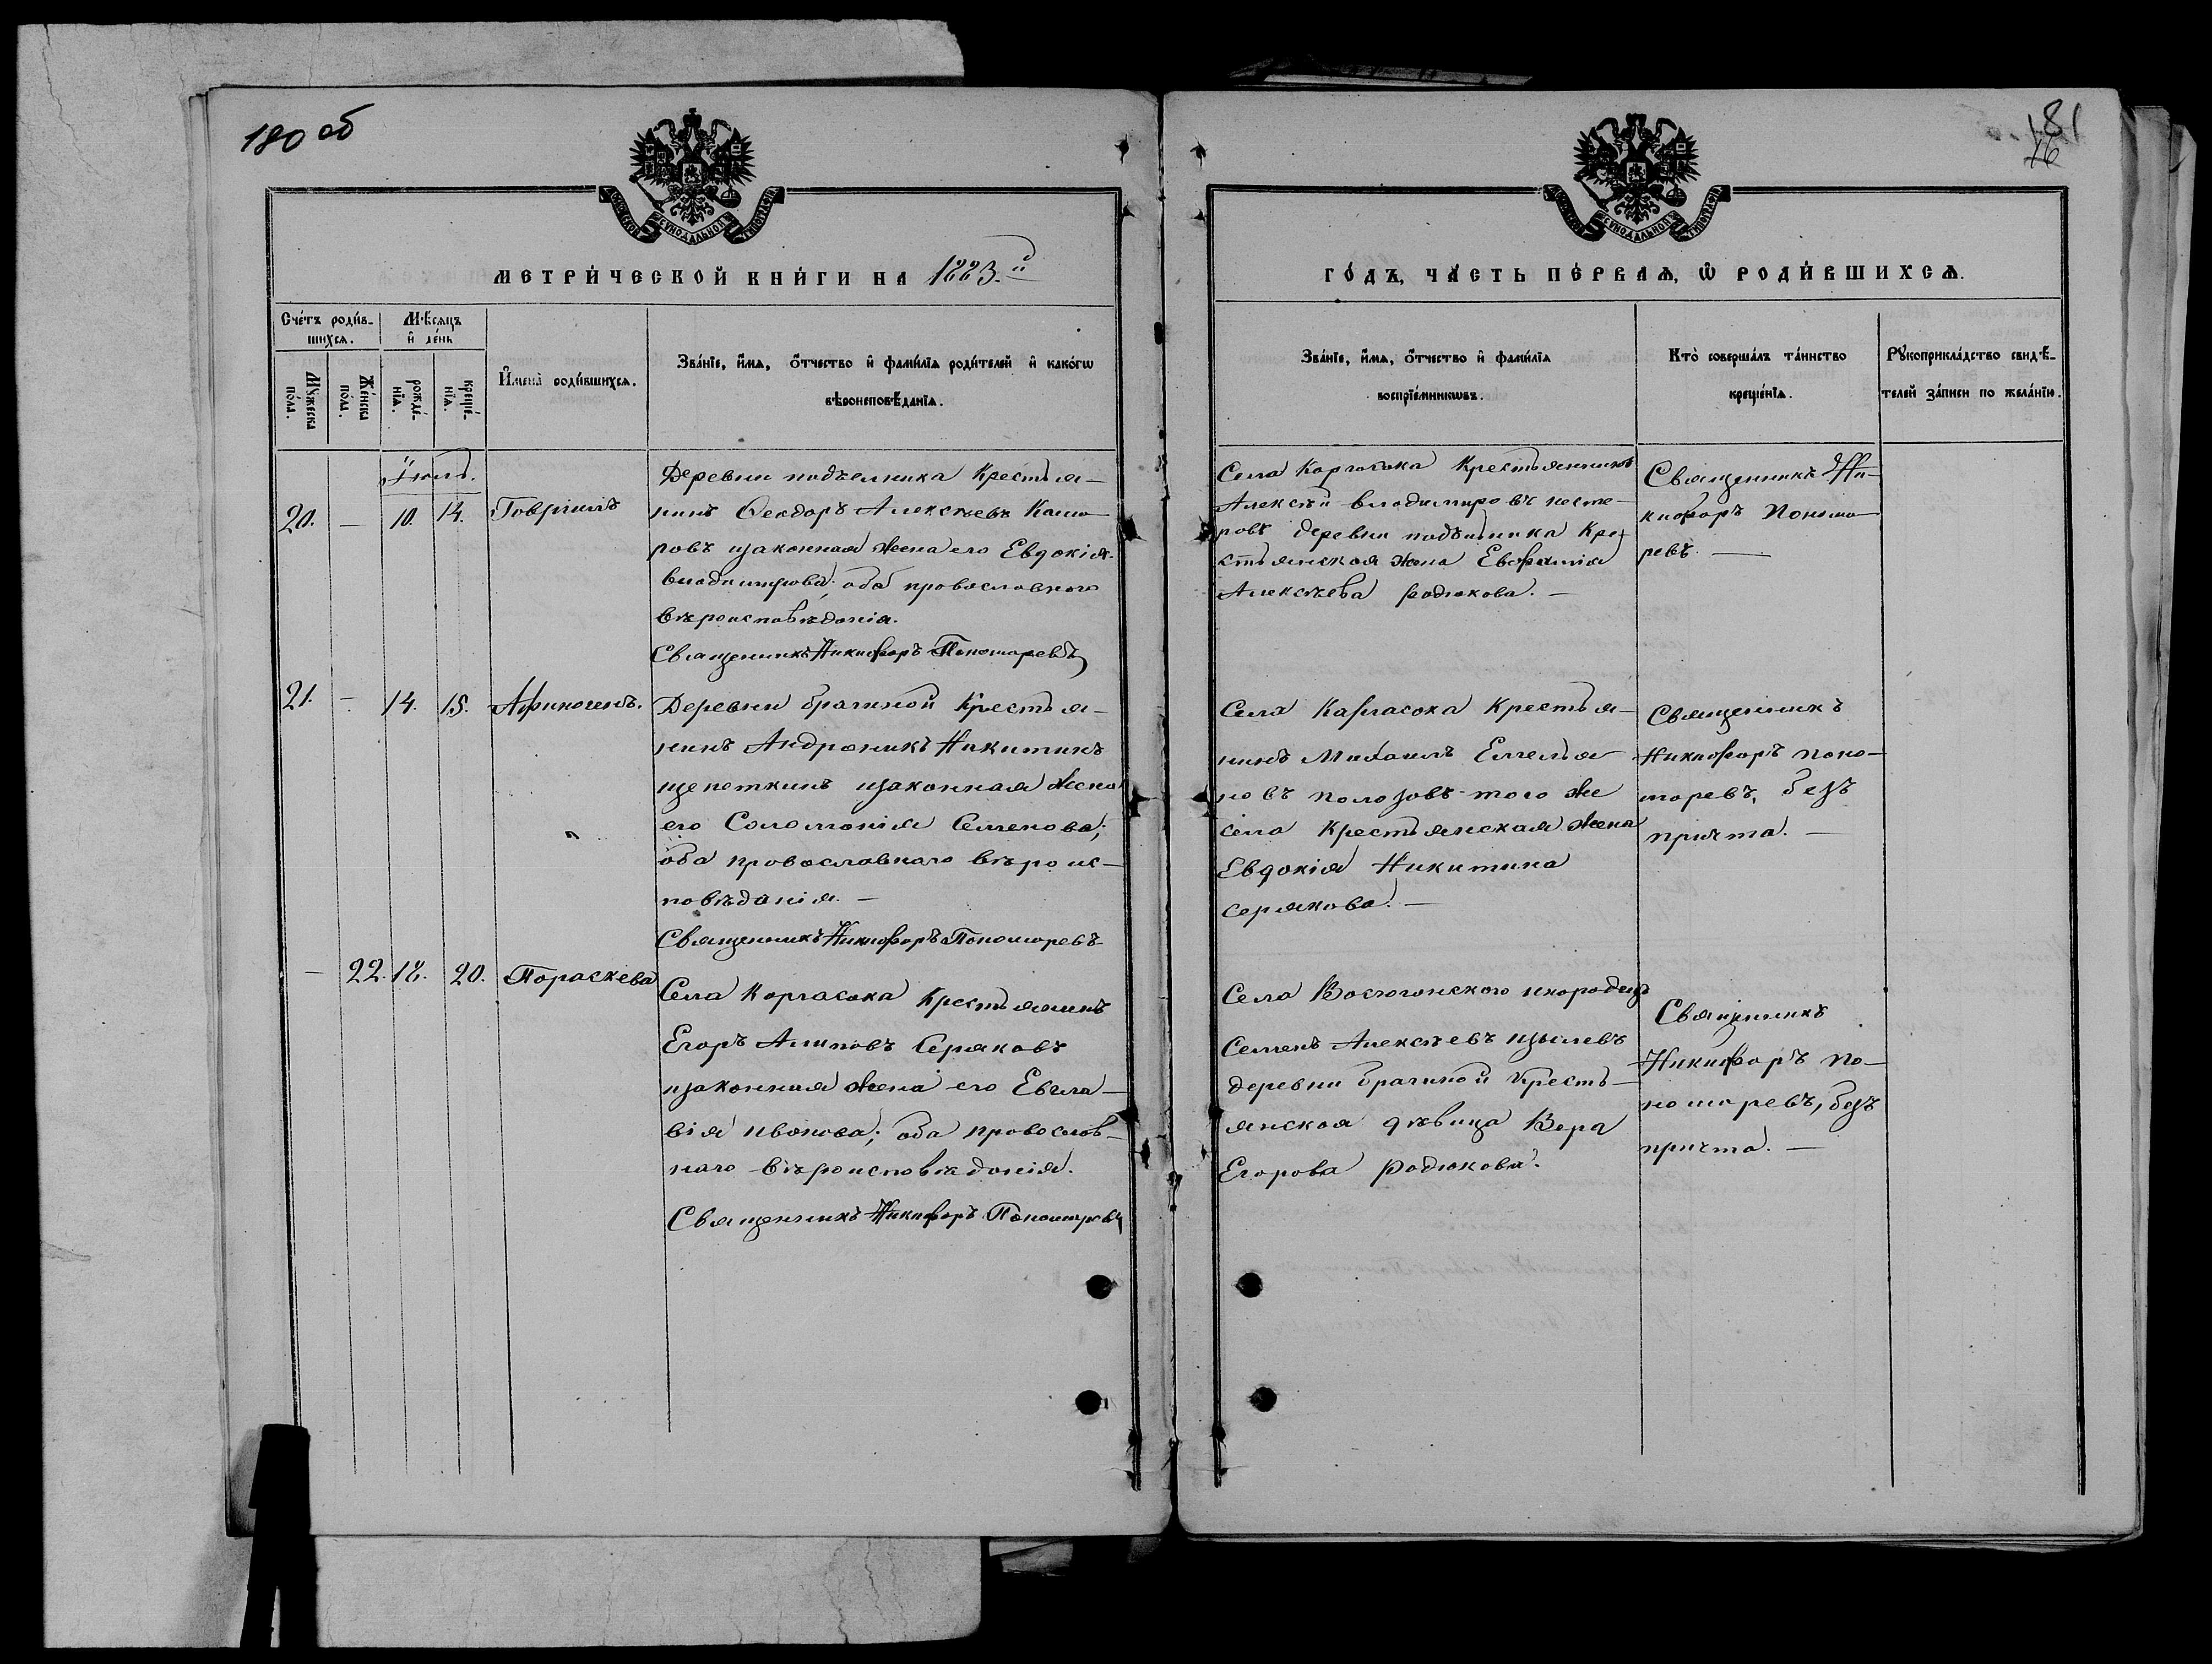 180 об
МЕТРИ́ЧЕСКОЙ КНИ́ГИ НА 1883.й
Сче́тъ роди́в-
шихсѧ.
Мꙋ́жеска по́ла.
Же́нска по́ла.
Мѣ́сяцъ и҆ де́нь
рожде́-нїѧ.
креще́-нїѧ.
И҆мена̀ роди́вшихсѧ.
Зва́нїе, и҆́мѧ, ѻ҆́тчество и҆ фами́лїѧ роди́телей и҆ како́гѡ
вѣроисповѣ́данїѧ.
Іюль.
20. — 10. 14. Говріилъ
Деревни подъельника Крестья-
нинъ Ѳеодоръ Алексѣевъ Камо-
ровъ изаконная жена его Евдокія
владимирова; оба провославного
вѣроисповѣдонія.
Священникъ Никифоръ Пономоревъ
21. — 14. 15. Афиногенъ.
Деревни брагиной Крестья-
нинъ Андроникъ Никитинъ
щепеткинъ изаконная жена
его Соломонія Семенова;
оба провославного вѣроис-
повѣданія. —
Священникъ Никифоръ Пономоревъ
— 22. 18. 20. Пораскева
Села Коргасока Крестьянинъ
Егоръ Алиповъ Серяковъ
изаконная жена его Евла-
вія ивонова; оба провослов-
наго вѣроисповѣдонія.
Священникъ Никифоръ Пономоревъ
181
ГО́ДЪ, ЧА́СТЬ ПЕ́РВАѦ, Ѽ РОДИ́ВШИХСѦ.
Зва́нїе, и҆́мѧ, ѻ҆́тчество и҆ фами́лїѧ
воспрїе́мникѡвъ.
Кто̀ соверша́лъ та́инство
креще́нїѧ.
Рꙋкоприкла́дство свидѣ́-
телей за́писи по жела́нїю.
Села Коргасока Крестьянинъ
Алексѣй владимировъ несте-
ровъ деревни подъельника Кре-
стьянская жена Евфимія
Алексѣева родюкова. —
Священникъ Ни-
кифоръ Пономо-
ревъ. —
Села Каргасока Крестья-
нинъ Михаилъ Емелья-
новъ полозовъ того же
села Крестьянская жена
Евдокія Никитина
серякова. —
Священникъ
Никифоръ поно-
моревъ, безъ
причта. —
Села Васюгонского инородецъ
Семенъ Алексѣевъ
деревни брагиной Кресть-
янская дѣвица Вера
Егорова родюкова.
Священникъ
Никифоръ по-
номоревъ, безъ
причта. —